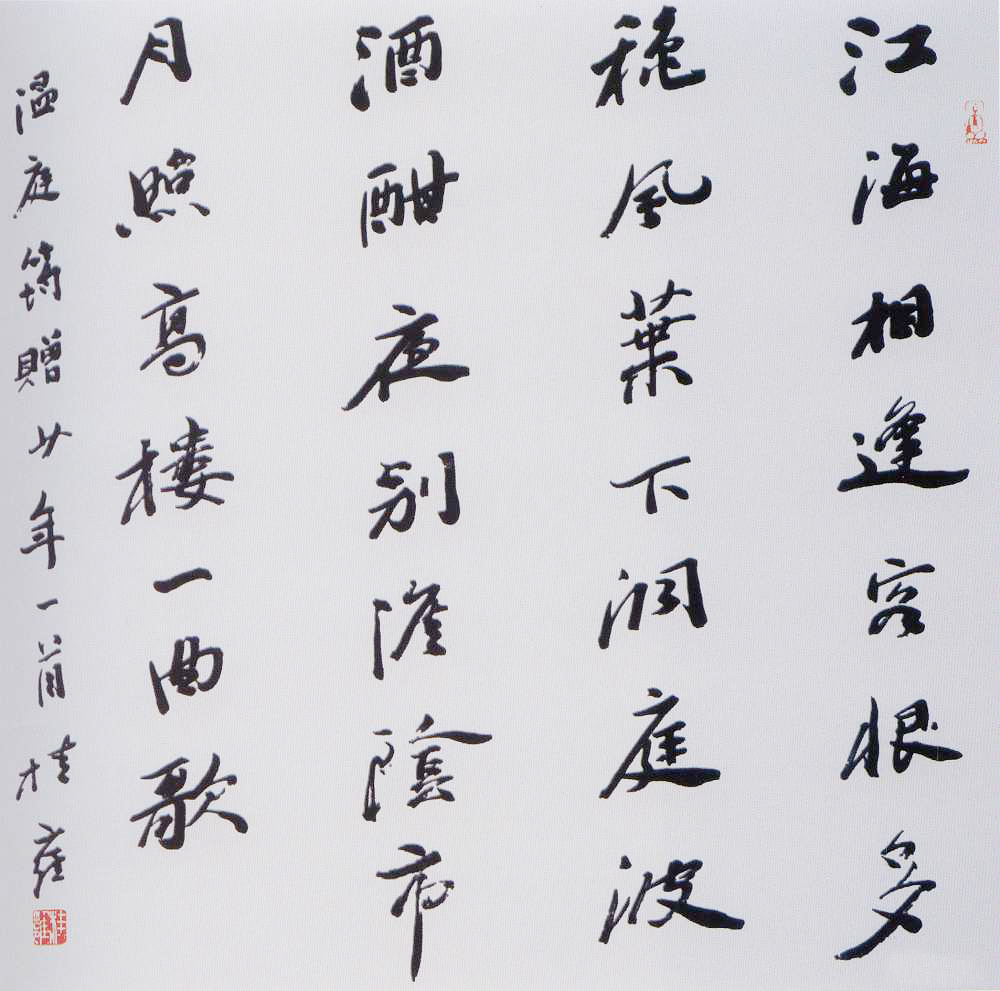 江海相逢客恨多
穐風葉下洞庭波
酒酣夜别淮陰市
月照高樓一曲歌
温庭筠贈少年一首 桂雍